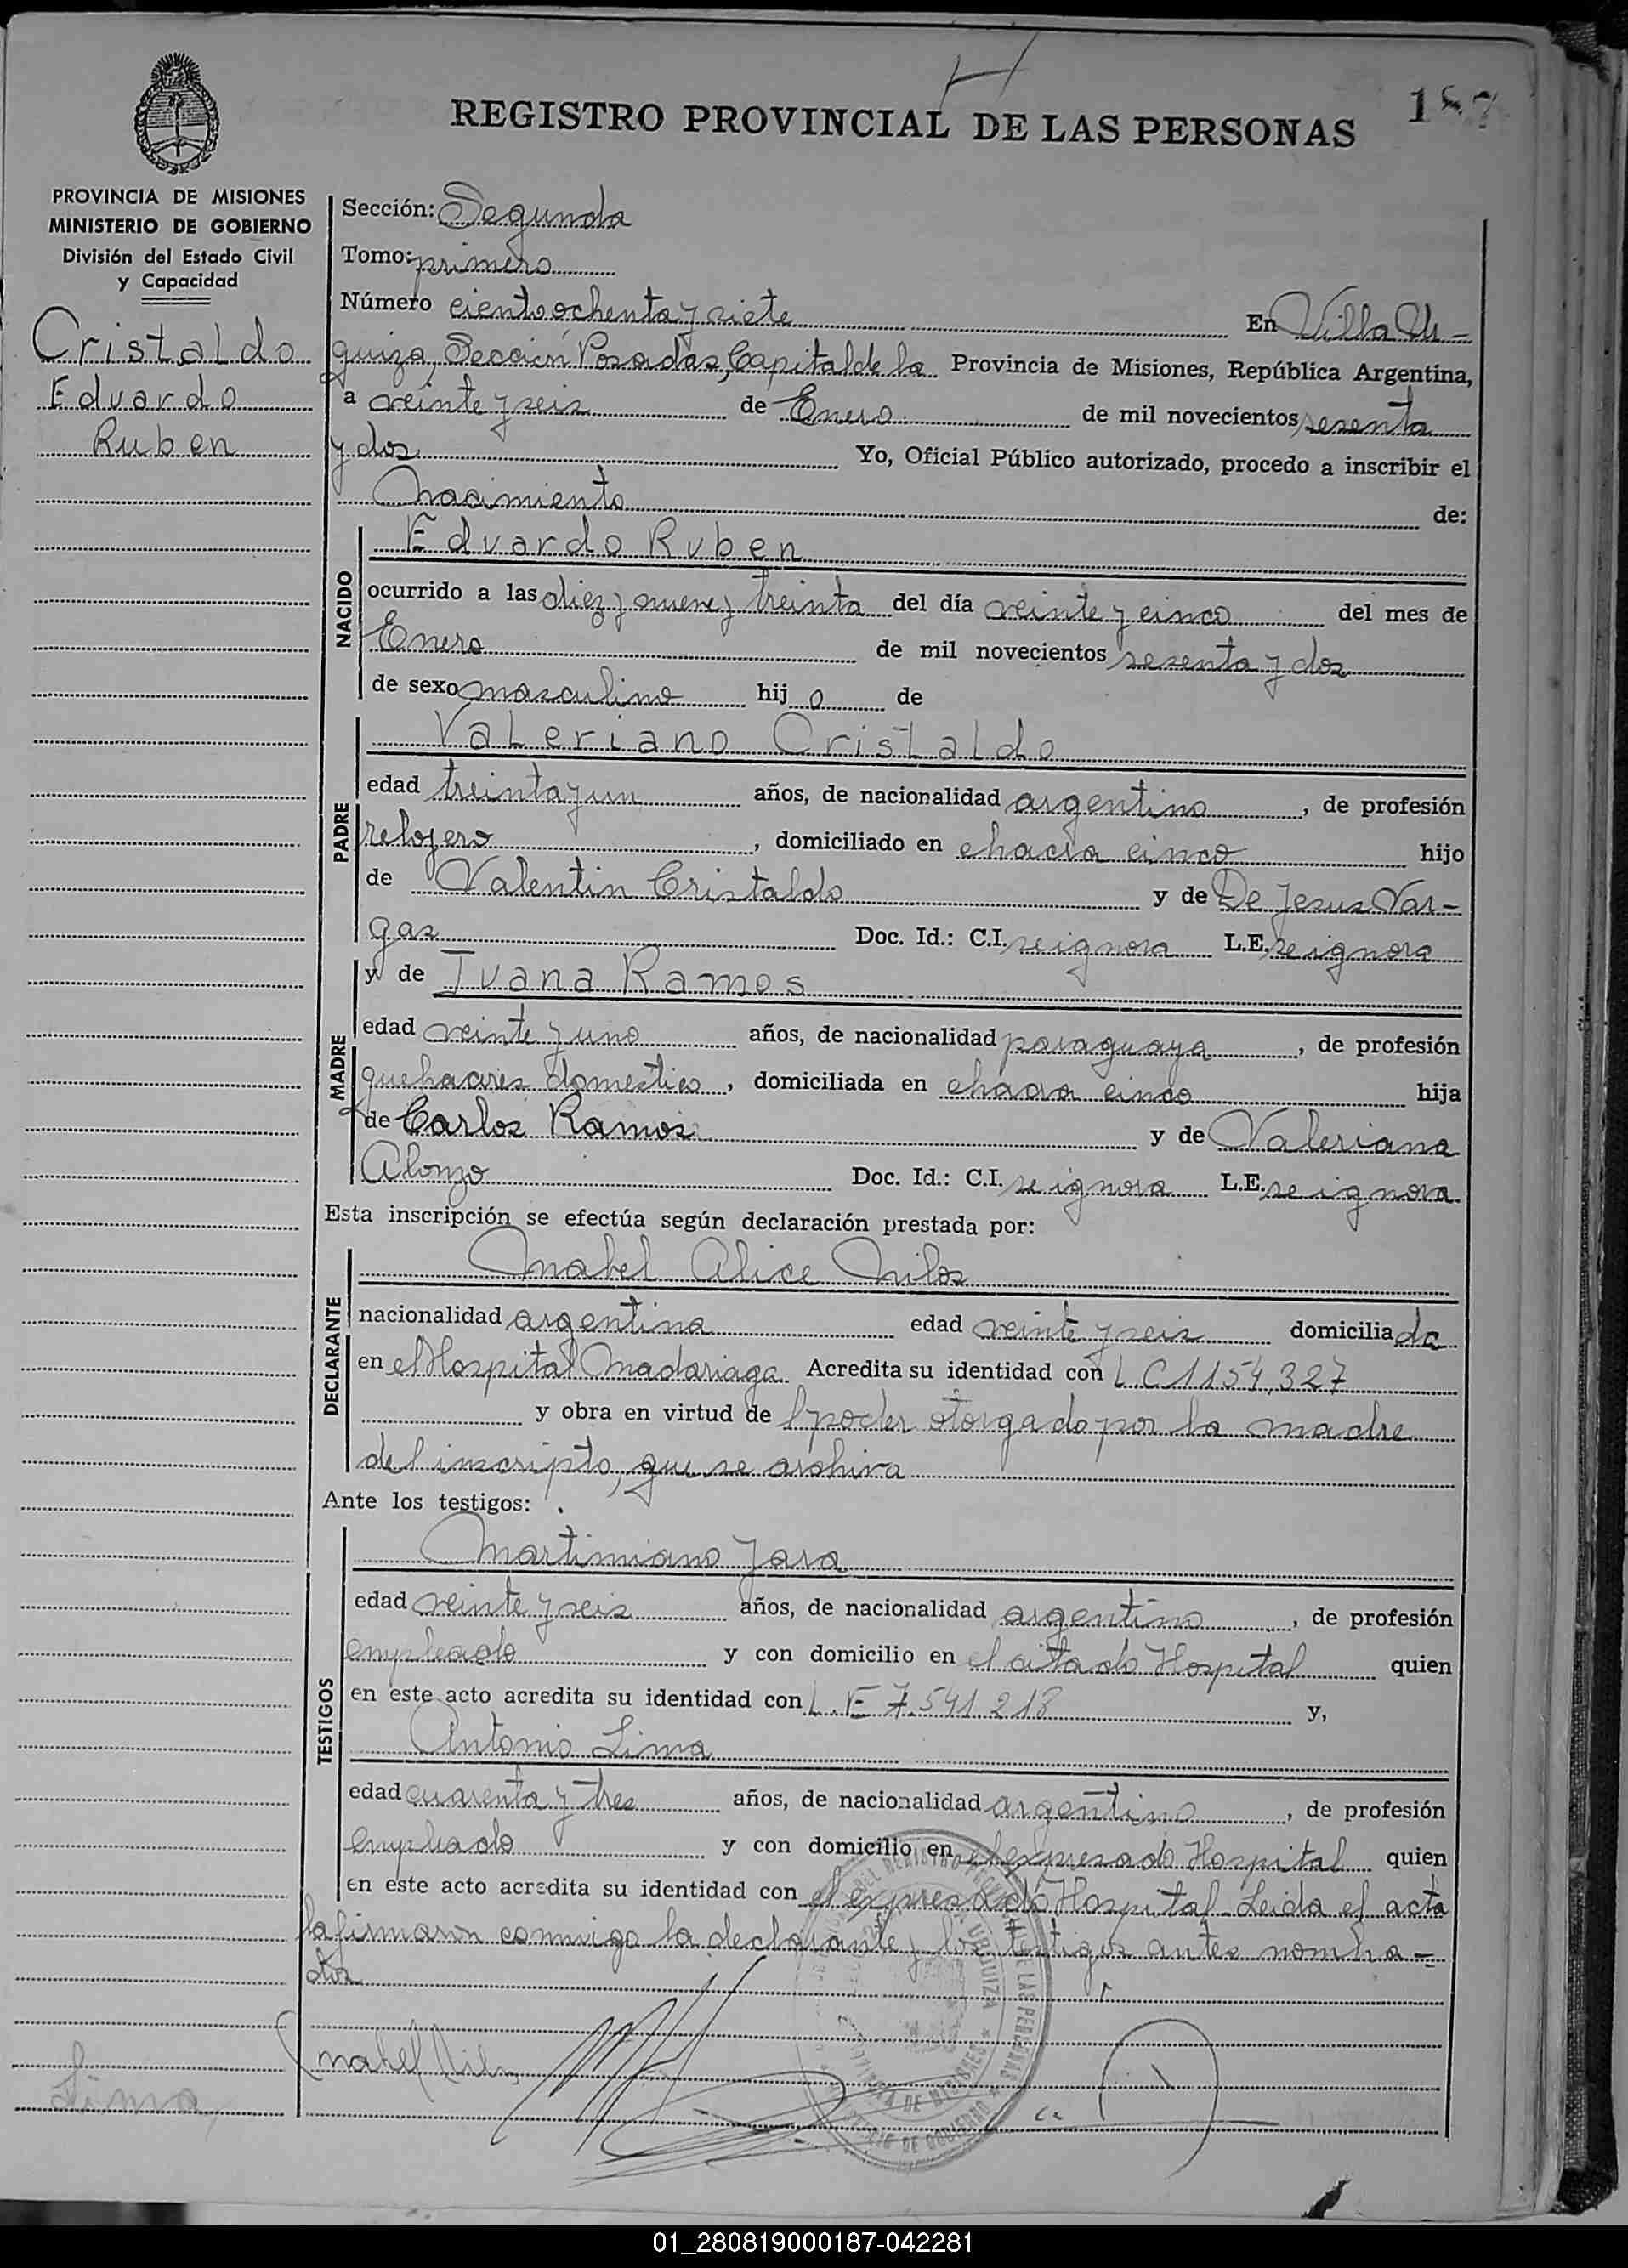 187
REGISTRO PROVINCIAL DE LAS PERSONAS
PROVINCIA DE MISIONES
MINISTERIO DE GOBIERNO
División del Estado Civil
y Capacidad
Cristaldo
Eduardo
Ruben
Sección: Segunda
Tomo: primero
Número ciento ochenta y siete En Villa Ur-
quiza, Sección Posadas, Capital de la Provincia de Misiones, República Argentina,
a veinte y seis de Enero de mil novecientos sesenta
y dos Yo, Oficial Público autorizado, procedo a inscribir el
Nacimiento de:
NACIDO
Eduardo Ruben
ocurrido a las diez y nueve y treinta del día veinte y cinco del mes de
Enero de mil novecientos sesenta y dos
de sexo masculino hijo de
PADRE
Valeriano Cristaldo
edad treinta y un años, de nacionalidad argentino, de profesión
relojero, domiciliado en chacra cinco hijo
de Valentin Cristaldo y de De Jesus Var-
gas Doc. Id.: C.I. se ignora L.E. se ignora
MADRE
y de Ivana Ramos
edad veinte y uno años, de nacionalidad paraguaya, de profesión
quehaceres domestico, domiciliada en chacra cinco hija
de Carlos Ramos y de Valeriana
Alonzo Doc. Id.: C.I. se ignora L.E. se ignora.
Esta inscripción se efectúa según declaración prestada por:
DECLARANTE
Mabel Alice Milos
nacionalidad argentina edad veinte y seis domiciliada
en el Hospital Madariaga Acredita su identidad con L C 1154.327
y obra en virtud de l poder otorgado por la madre
del inscripto, que se archiva
Ante los testigos:
TESTIGOS
Martimiano Jara
edad veinte y seis años, de nacionalidad argentino, de profesión
empleado y con domicilio en el citado Hospital quien
en este acto acredita su identidad con L.E 7.541.218 y,
Antonio Lima
edad cuarenta y tres años, de nacionalidad argentino, de profesión
empleado y con domicilio en el expresado Hospital quien
en este acto acredita su identidad con el expresado Hospital. Leida el acta
la firmaron conmigo la declarante y los testigos antes nombra-
dos
Mabel Milos
Lima
01_280819000187-042281